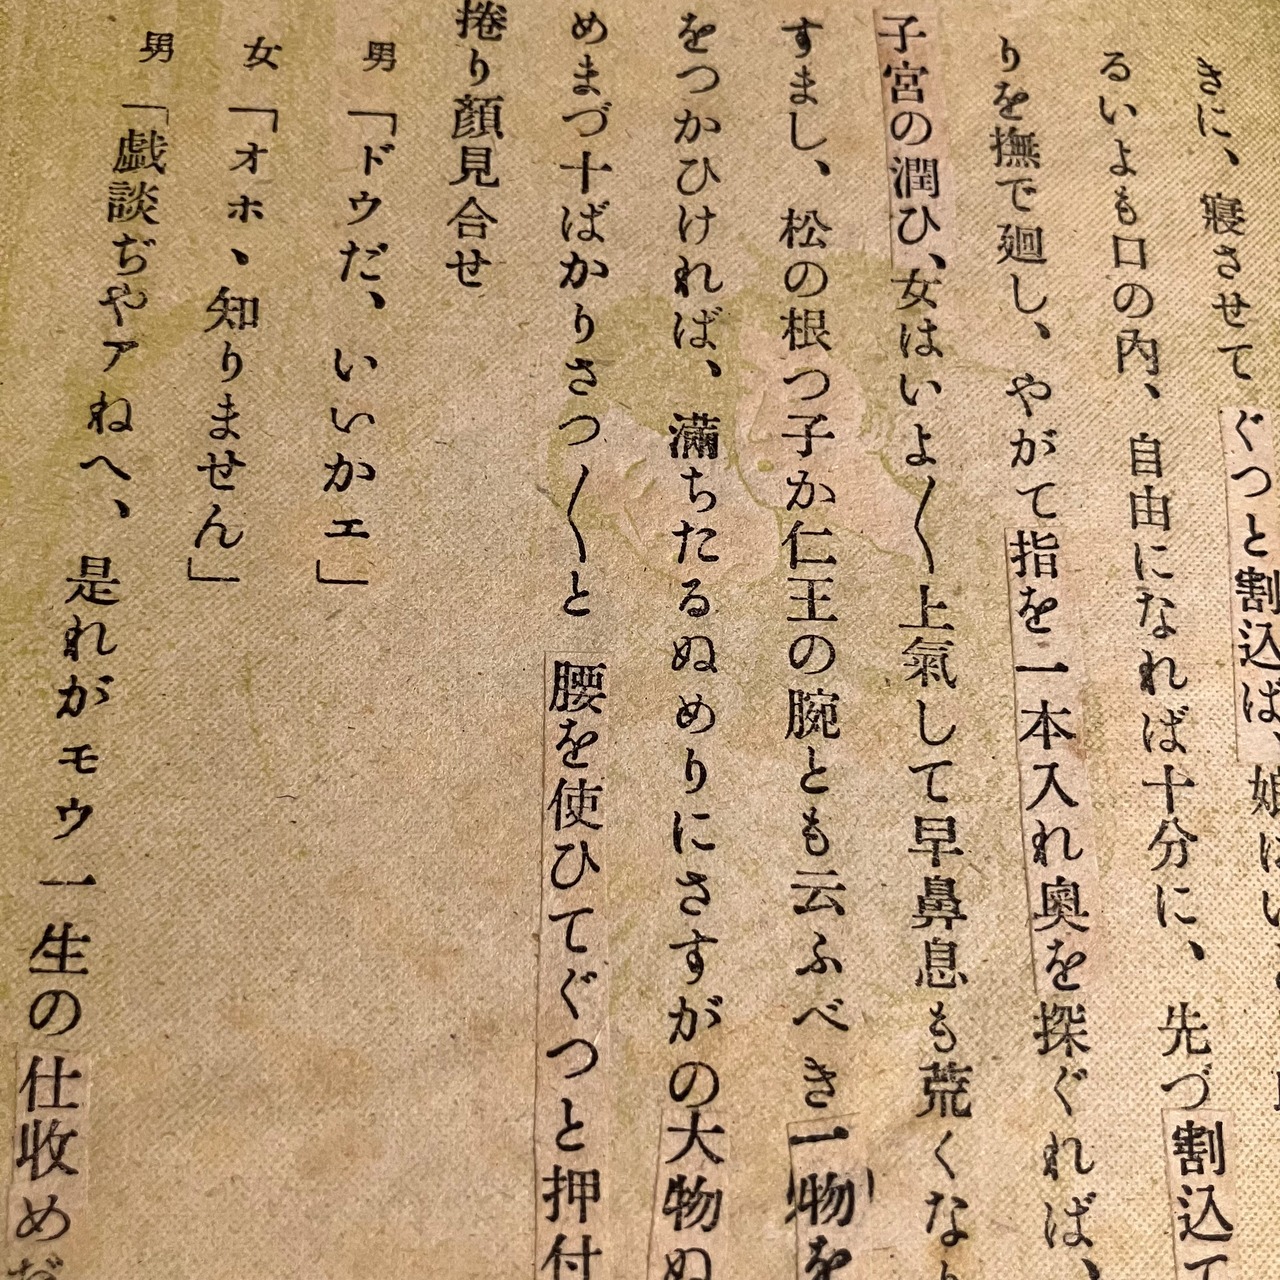 きに、寝させてぐつと割込ば、娘はい
るいよも口の内、自由になれば十分に、先づ割込て
りを撫で廻し、やがて指を一本入れ奥を探ぐれば、
子宮の潤ひ、女はいよ〱上氣して早鼻息も荒くなり
すまし、松の根つ子か仁王の腕とも云ふべき一物を
をつかひければ、滿ちたるぬめりにさすがの大物ぬ
めまづ十ばかりさつ〱と 腰を使ひてぐつと押付
捲り顔見合せ
男「ドウだ、いいかエ」
女「オホヽ知りません」
男「戯談ぢやアねへ、是れがモウ一生の仕收めだ